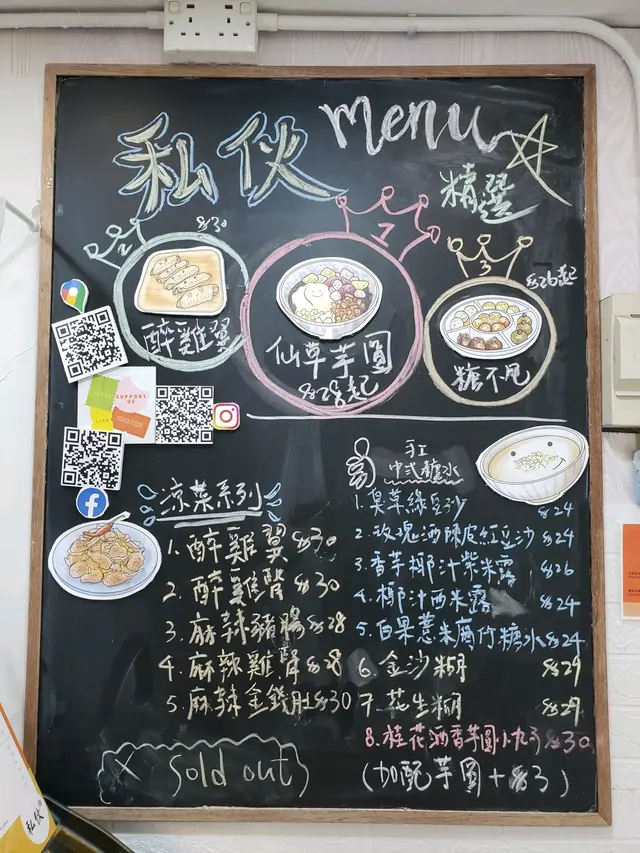 私伙 menu
精選
2
$30
醉雞翼
1
仙草芋圓
$28起
3
$26起
糖不甩
SUPPORT
US
凉菜系列
1. 醉雞翼 $30
2. 醉雞腎 $30
3. 麻辣豬腸 $28
4. 麻辣雞腎 $28
5. 麻辣金錢肚 $30
手工
中式糖水
1. 臭草綠豆沙 $24
2. 玫瑰酒陳皮紅豆沙 $24
3. 香芋椰汁紫米露 $26
4. 椰汁西米露 $24
5. 白果薏米腐竹糖水 $24
6. 金沙糊 $29
7. 花生糊 $29
8. 桂花酒香芋圓小丸子 $30
(加配芋圓 + $3)
X Sold out
私伙